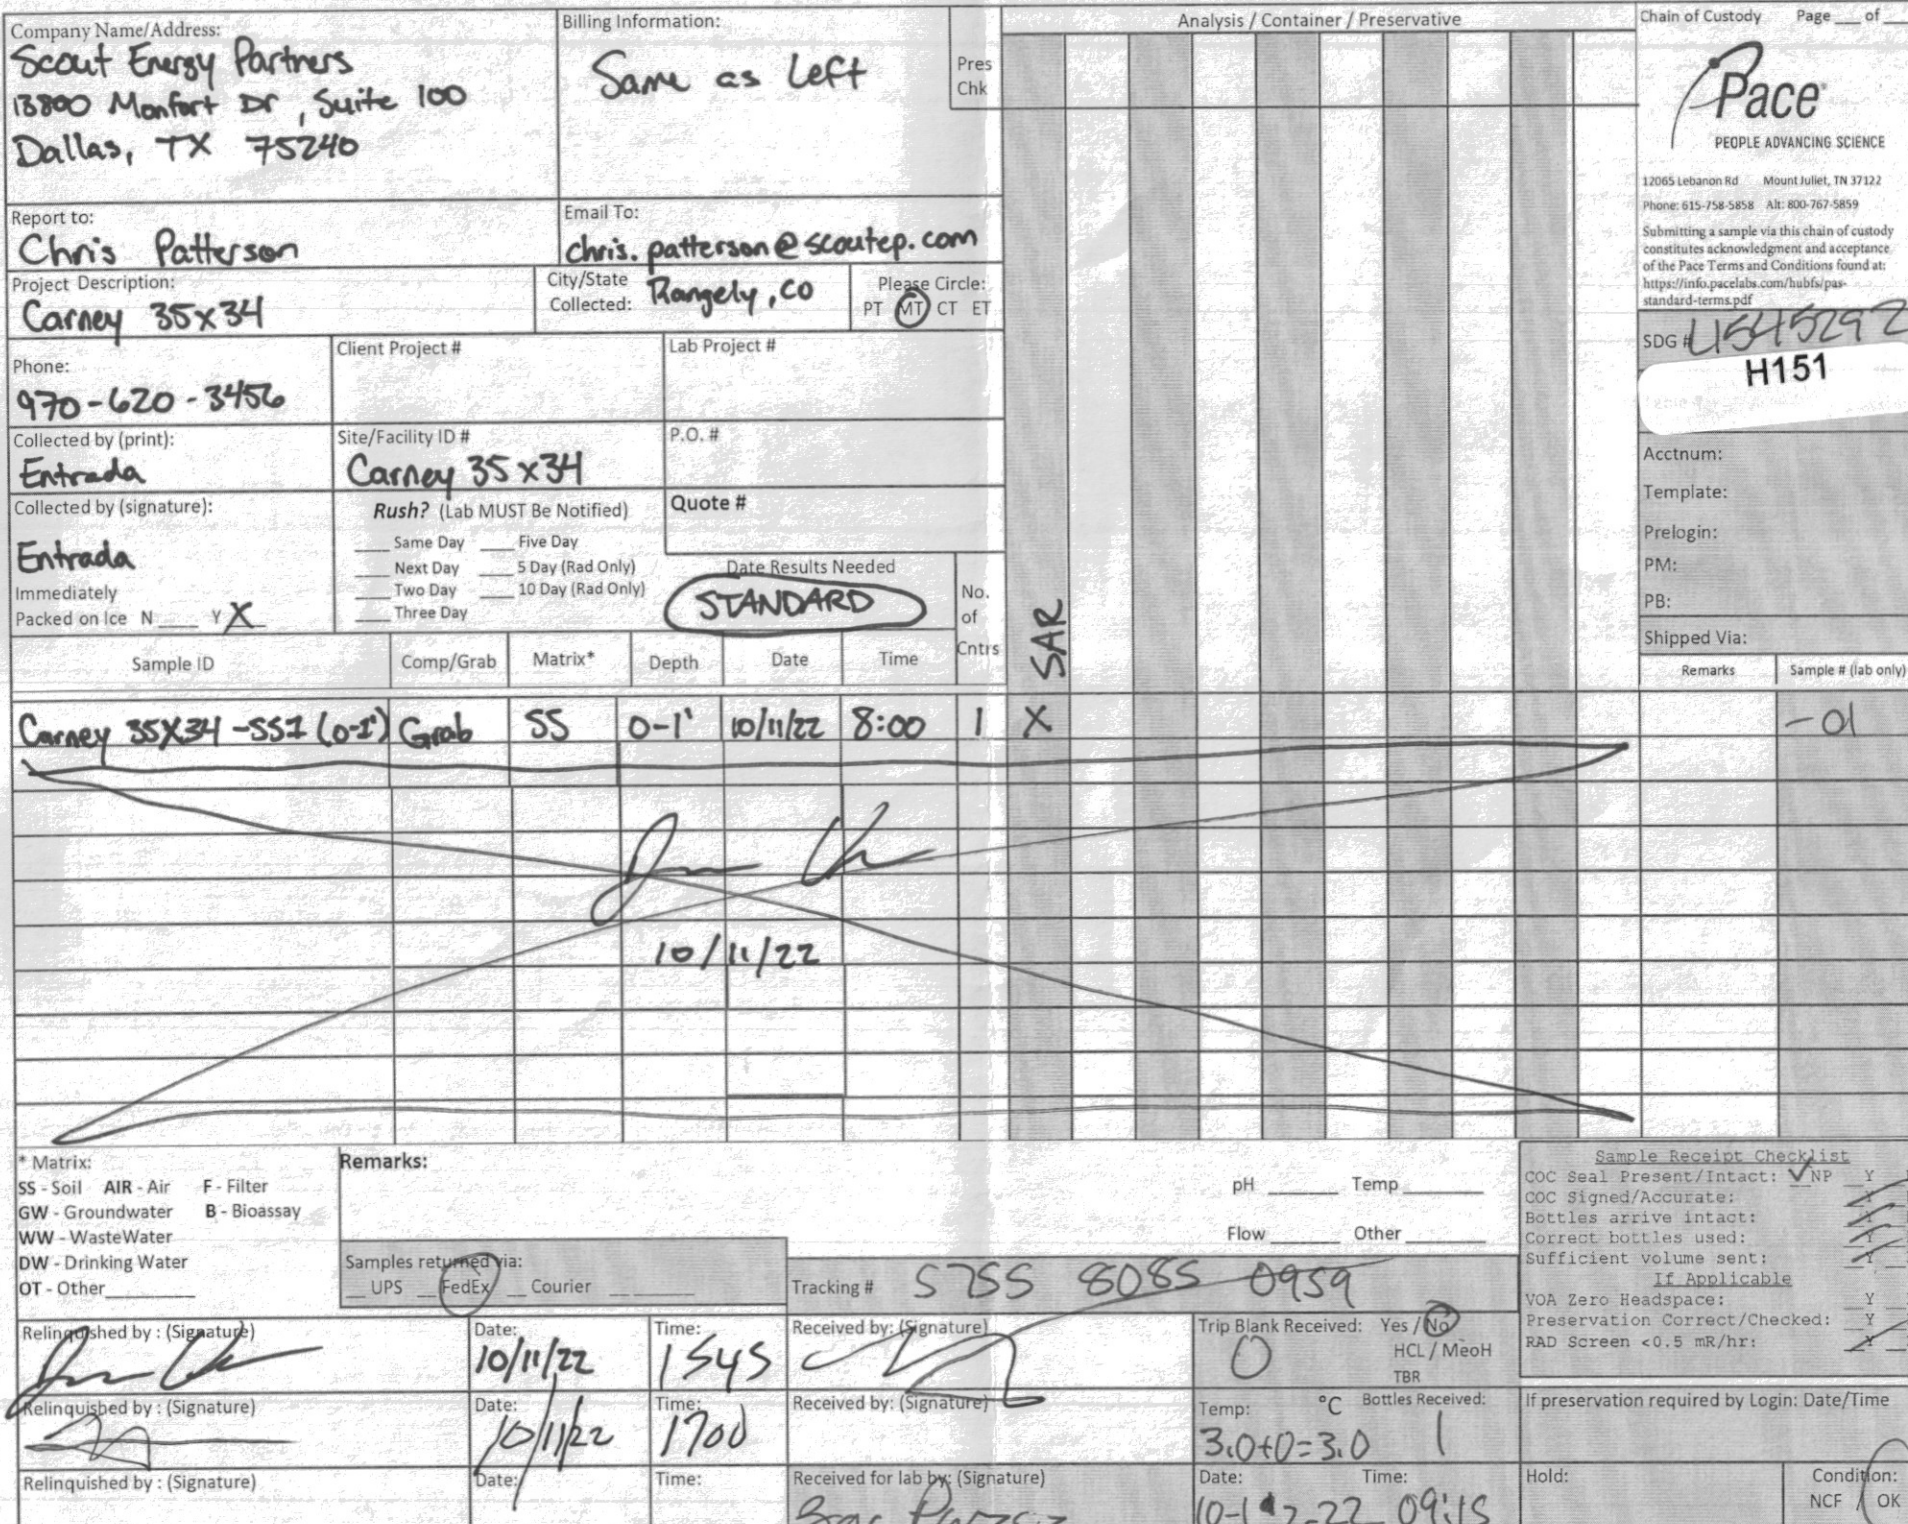 Company Name/Address:
Scout Energy Partners
13800 Monfort Dr, Suite 100
Dallas, TX 75240
Billing Information:
Same as Left
Pres
Chk
Analysis / Container / Preservative
Chain of Custody Page ___ of ___
Pace
PEOPLE ADVANCING SCIENCE
12065 Lebanon Rd Mount Juliet, TN 37122
Phone: 615-758-5858 Alt: 800-767-5859
Submitting a sample via this chain of custody
constitutes acknowledgment and acceptance
of the Pace Terms and Conditions found at:
https://info.pacelabs.com/hubfs/pas-
standard-terms.pdf
Report to:
Chris Patterson
Email To:
chris.patterson@scoutep.com
Project Description:
Carney 35x34
City/State
Collected: Rangely, CO
Please Circle:
PT MT CT ET
SDG # L1545292
H151
Phone:
970-620-3456
Client Project #
Lab Project #
Collected by (print):
Entrada
Site/Facility ID #
Carney 35x34
P.O. #
Acctnum:
Template:
Prelogin:
PM:
PB:
Shipped Via:
Collected by (signature):
Entrada
Immediately
Packed on Ice N ___ Y X
Rush? (Lab MUST Be Notified)
___ Same Day ___ Five Day
___ Next Day ___ 5 Day (Rad Only)
___ Two Day ___ 10 Day (Rad Only)
___ Three Day
Quote #
Date Results Needed
STANDARD
No.
of
Cntrs
SAR
Sample ID Comp/Grab Matrix* Depth Date Time
Remarks Sample # (lab only)
Carney 35X34-SS1 (0-1') Grab SS 0-1' 10/11/22 8:00 1 X -01
10/11/22
* Matrix:
SS - Soil AIR - Air F - Filter
GW - Groundwater B - Bioassay
WW - WasteWater
DW - Drinking Water
OT - Other
Remarks:
pH ___ Temp ___
Flow ___ Other ___
Samples returned via:
__ UPS __ FedEx __ Courier
Tracking # 5755 8085 0959
Sample Receipt Checklist
COC Seal Present/Intact: ✓NP _Y
COC Signed/Accurate: Y
Bottles arrive intact: Y
Correct bottles used: Y
Sufficient volume sent: Y
If Applicable
VOA Zero Headspace: _Y
Preservation Correct/Checked: _Y
RAD Screen <0.5 mR/hr: Y
Relinquished by : (Signature)
Date:
10/11/22
Time:
1545
Received by: (Signature)
Trip Blank Received: Yes / No
0
HCL / MeoH
TBR
Relinquished by : (Signature)
Date:
10/11/22
Time:
1700
Received by: (Signature)
Temp: °C Bottles Received:
3.0+0=3.0 1
If preservation required by Login: Date/Time
Relinquished by : (Signature)
Date:
Time:
Received for lab by: (Signature)
Date: Time:
09:15
Hold:
Condition:
NCF / OK